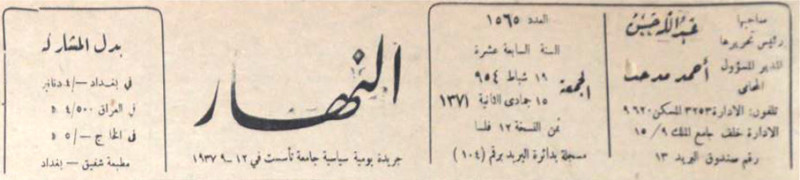 صاحبها
ورئيس تحريرها
عبد الله حسن
المدير المسؤول
احمد مدحت
المحامي
تلفون: الادارة ٣٢٥٣ المسكن ٩٦٢٠
الادارة خلف جامع الملك ١٥/٩
رقم صندوق البريد ١٣
العدد ١٥٦٥
السنة السابعة عشرة
الجمعة
١٩ شباط ٩٥٤
١٥ جمادى الثانية ١٣٧١
ثمن النسخة ١٢ فلسا
مسجلة بدائرة البريد برقم (١٠٤)
النهار
جريدة يومية سياسية جامعة تأسست في ١٢-٩-١٩٣٧
بدل المشاركة
في بغداد -/٤ دنانير
في العراق ٤/٥٠٠ د
في الخارج -/٥ د
مطبعة شفيق - بغداد